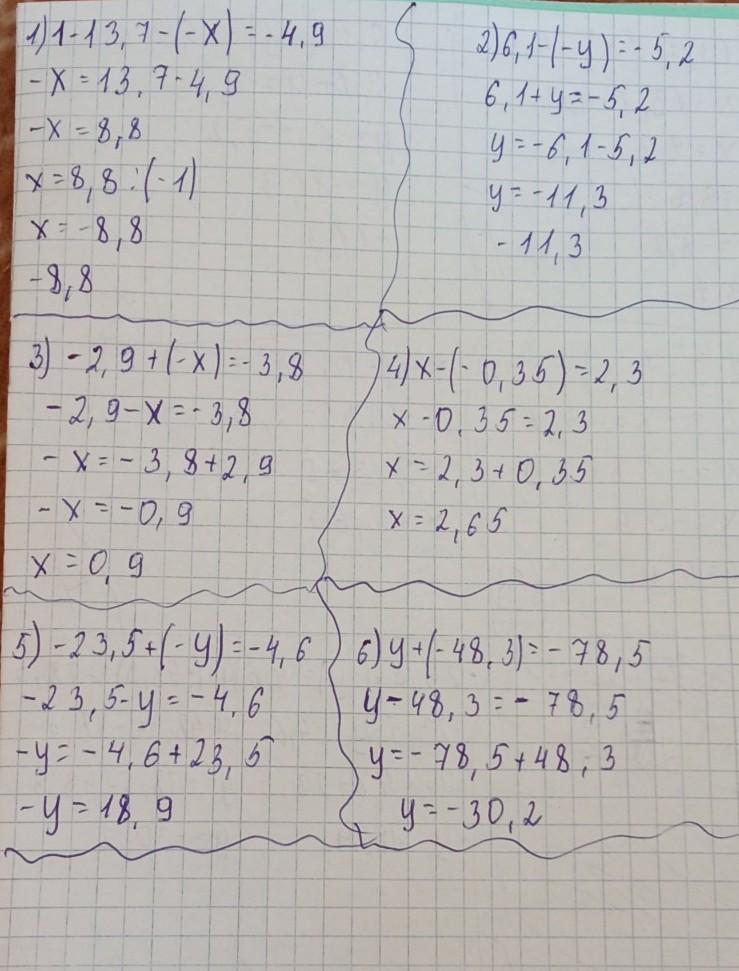 1) 1-13,7-(-x)=-4,9
-x=13,7-4,9
-x=8,8
x=8,8:(-1)
x=-8,8
-8,8
2) 6,1-(-y)=-5,2
6,1+y=-5,2
y=-6,1-5,2
y=-11,3
-11,3
3) -2,9+(-x)=-3,8
-2,9-x=-3,8
-x=-3,8+2,9
-x=-0,9
x=0,9
4) x-(-0,35)=2,3
x-0,35=2,3
x=2,3+0,35
x=2,65
5) -23,5+(-y)=-4,6
-23,5-y=-4,6
-y=-4,6+23,5
-y=18,9
6) y+(-48,3)=-78,5
y-48,3=-78,5
y=-78,5+48,3
y=-30,2